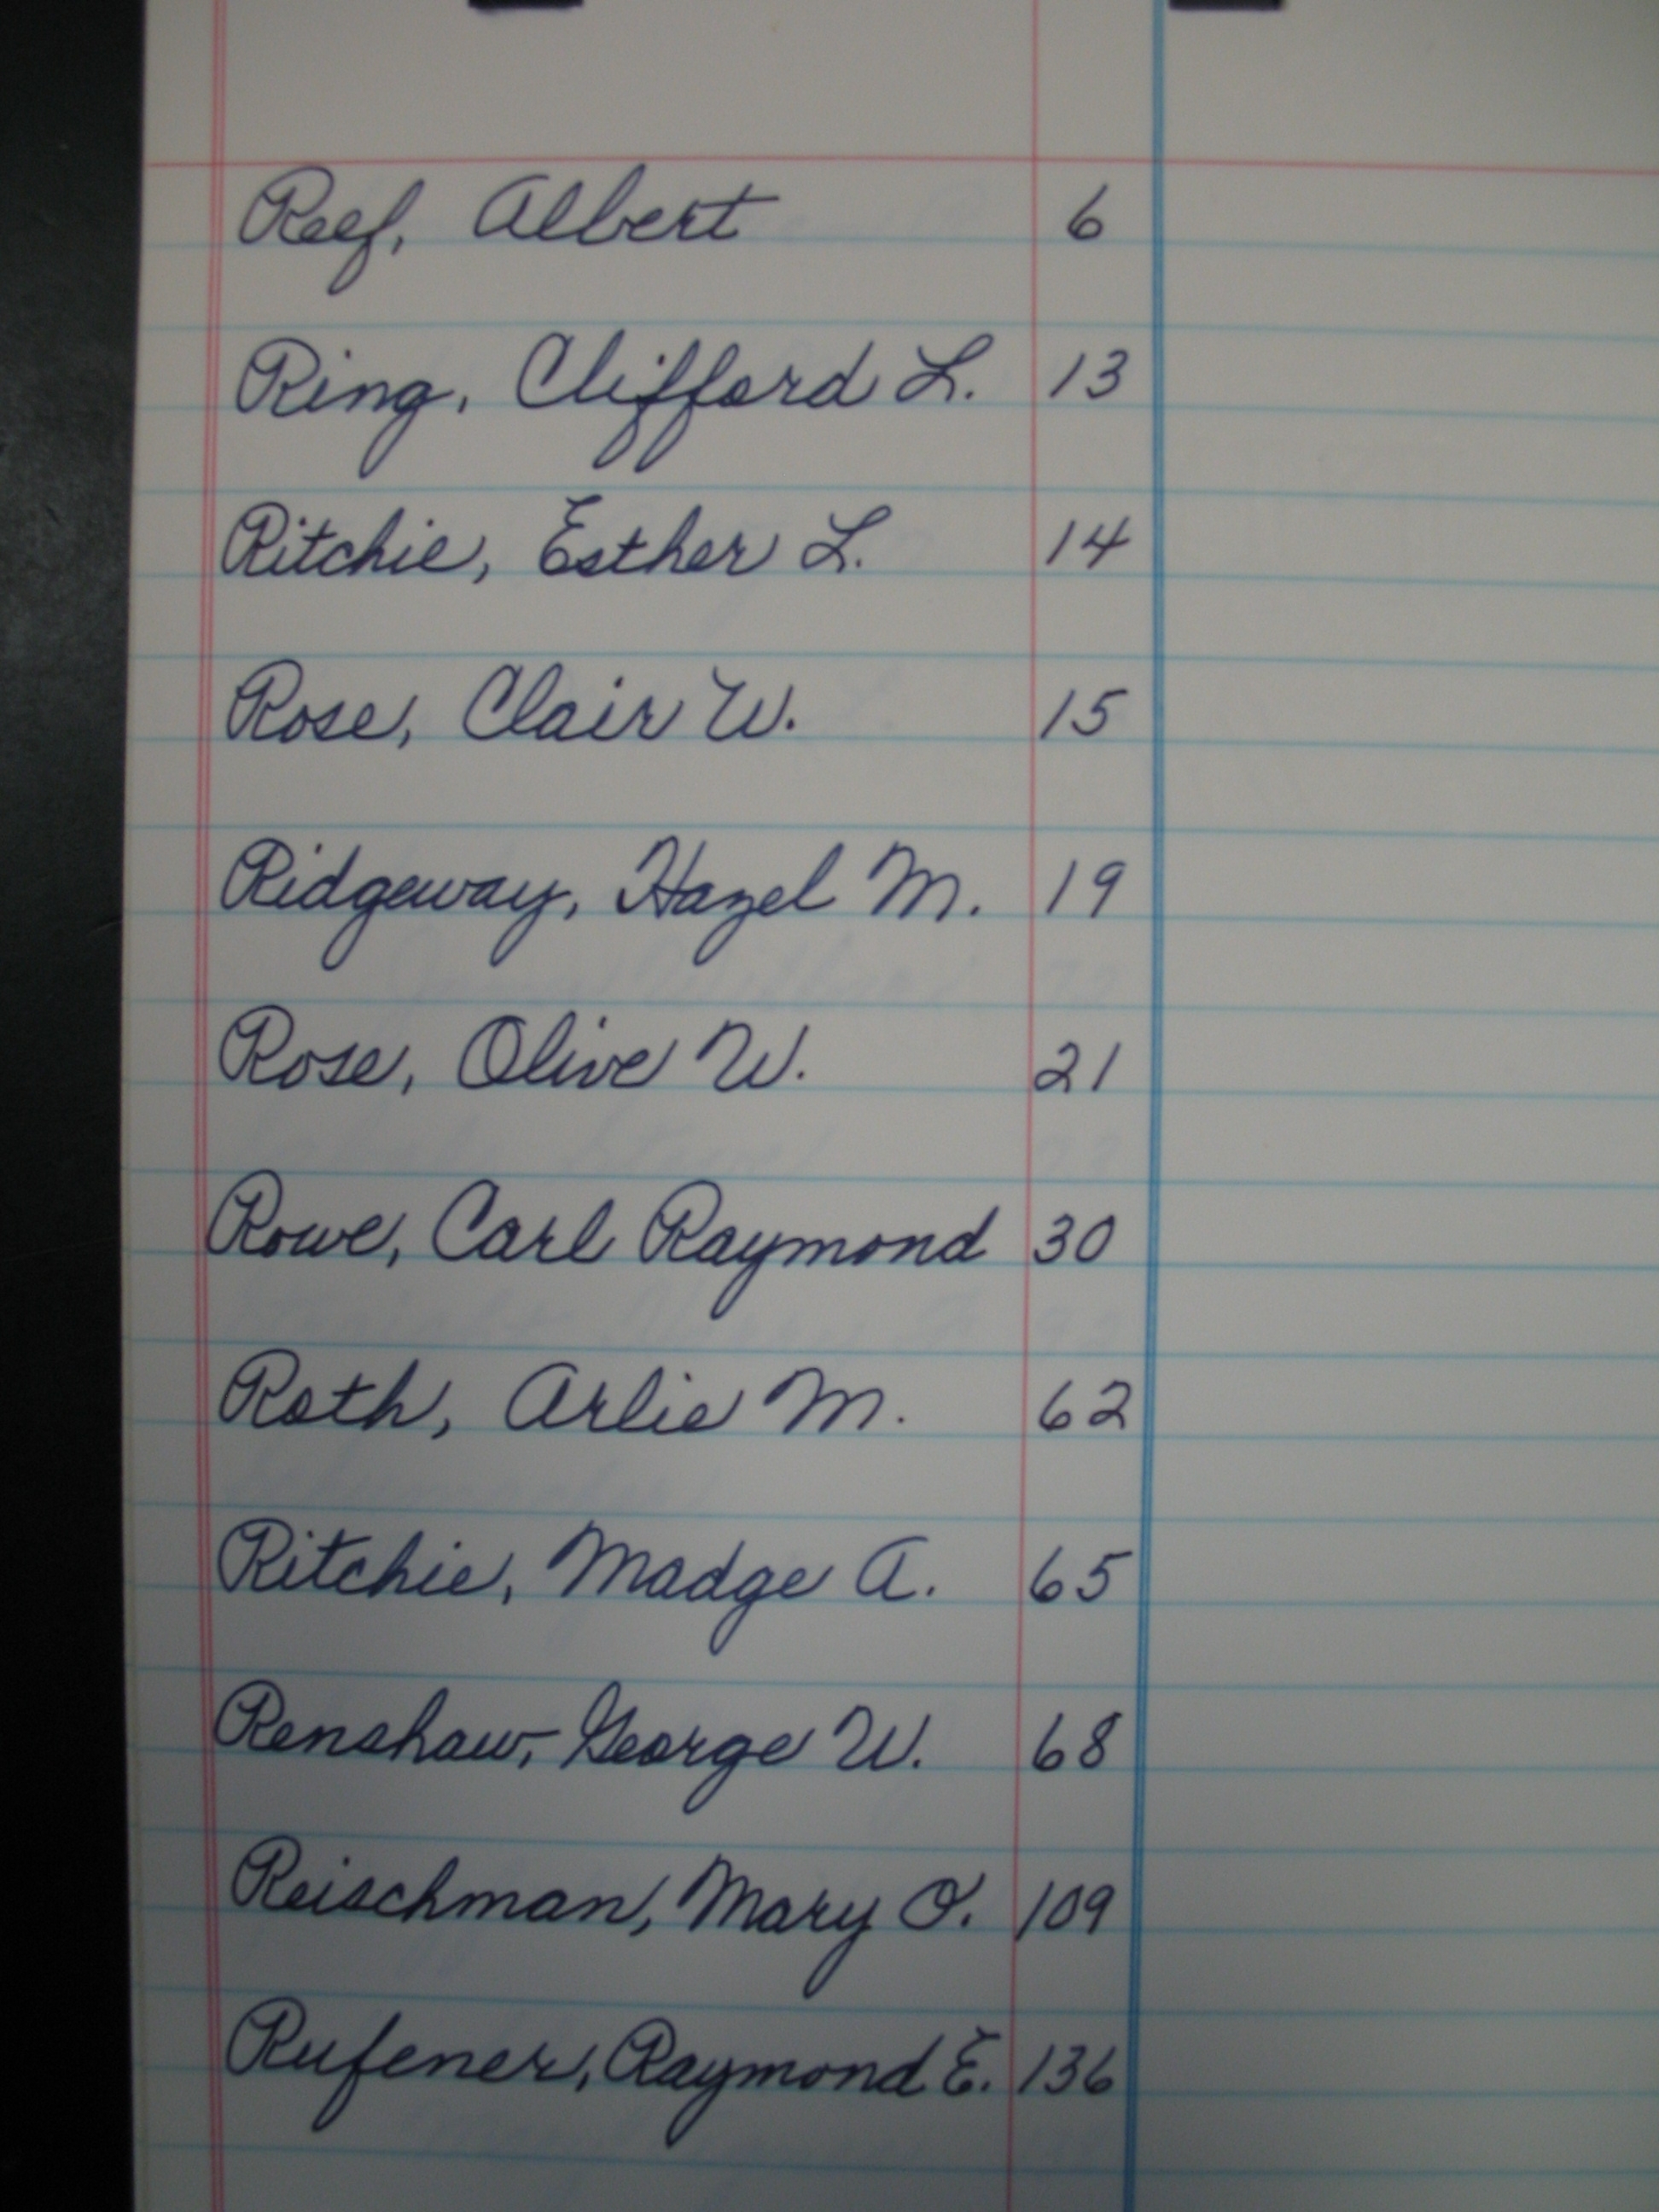 Reef, Albert 6
Ring, Clifford L. 13
Ritchie, Esther L. 14
Rose, Clair W. 15
Ridgeway, Hazel M. 19
Rose, Olive W. 21
Rowe, Carl Raymond 30
Roth, Arlie M. 62
Ritchie, Madge A. 65
Renshaw, George W. 68
Reischman, Mary O. 109
Rufener, Raymond E. 136